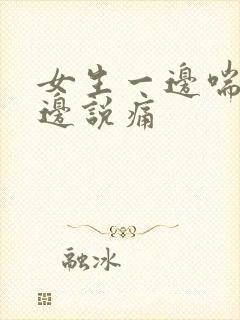 女生一邊喘
邊說痛
融冰